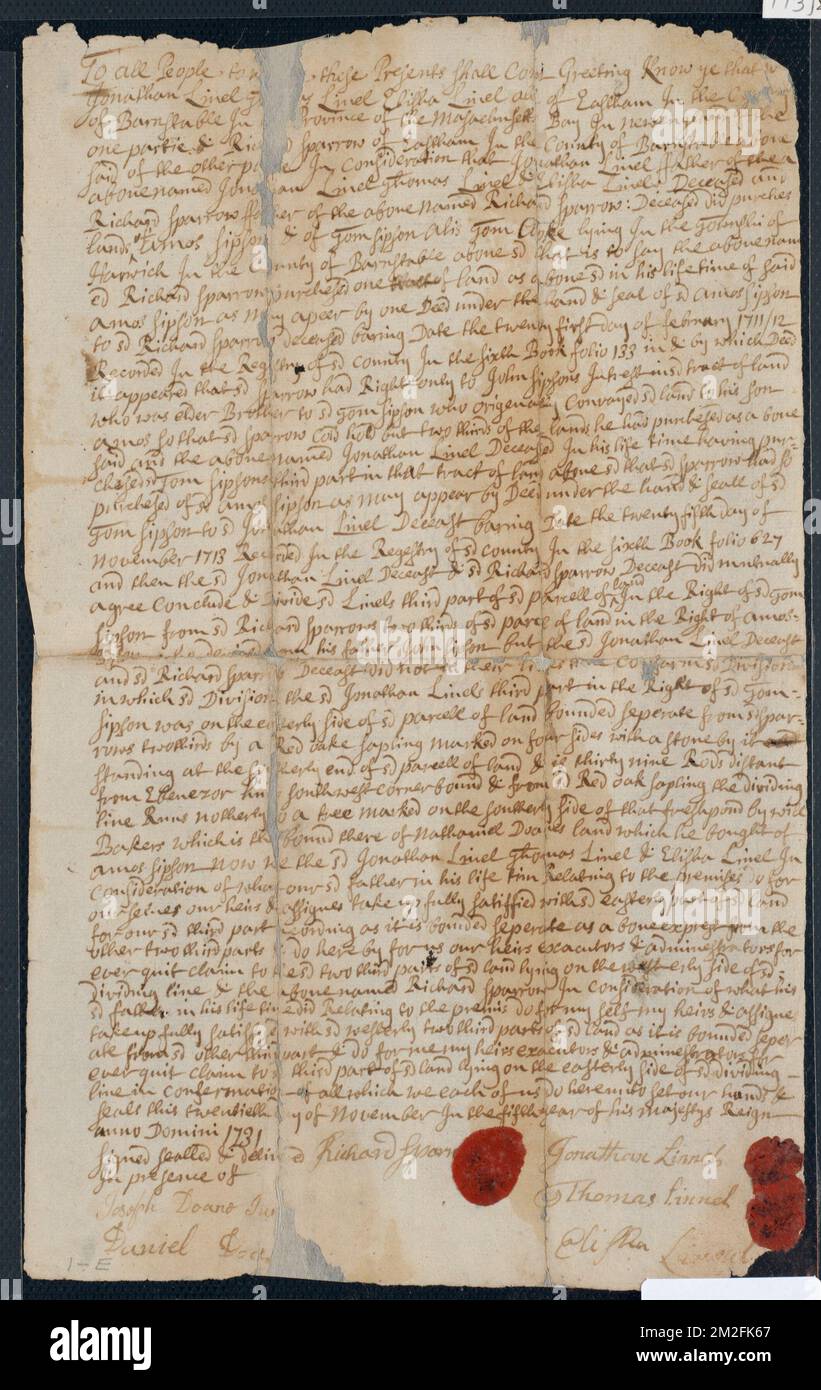 To all People to these Presents Shall Come Greeting Know ye that
Jonathan Linel Linel Elisha Linel all of Eastham In the
of Barnstable In Province of the Masachusetts Bay In New
one partie & Richard Sparrow of Eastham In the County of Barnstable above
said of the other In Consideration that Jonathan Linel ffather of the a
abovenamed Linel Thomas Linel & Elisha Linel: Deceased and
Richard Sparrow ffather of the above Named Richard Sparrow: Deceased did purches
lands of Amos Sipson & of Tom Sipson Alis Tom lying In the Townshi of
Harwich In the County of Barnstable above sd that is to say the abovenam
sd Richard Sparrow purchesed one of land as above sd in his lifetime of said
amos Sipson as May apeer by one Deed under the hand & seal of sd Amos Sipson
to sd Richard Sparrow deceased baring Date the twenty first day of february 1711/12
Recorded In the Registry of sd County In the Sixth Book folio 133 in & by which Deed
it appeared that sd Sparrow had Right only to John Sipsons Intrest in sd tract of land
who was elder Brother to sd Tom Sipson who originaly Convayed sd land to his son
amos so that sd Sparrow Cold hold but two thirds of the lands he had purchesed as a bone
said and the above named Jonathan Linel Deceased In his life time having pur-
chesed sd Tom Sipsons third part in that tract of land above sd that sd Sparrow had so
purchesed of sd amos Sipson as May appear by Deed under the hand & seall of sd
Tom Sipson to sd Jonathan Linel Deceast baring Date the twenty fifth day of
November 1713 Recorded In the Registry of sd County In the sixth Book folio 627
and then the sd Jonathan Linel Deceast & sd Richard Sparrow Deceast did mutually
agree Conclude & Divide sd Linels third part of sd parcel of land In the Right of sd Tom
Sipson from sd Richard Sparrows two thirds of sd parcel of land in the Right of Amos-
his father Tom Sipson but the sd Jonathan Linel Deceast
and sd Richard Sparrow Deceast did not in their lifetime Confarm sd Division
in which sd Division the sd Jonathan Linels third part in the Right of sd Tom-
Sipson was on the easterly side of sd parcell of land bounded seperate from sd Spar-
rows two thirds by a Red oake sapling marked on four sides with a stone by it
standing at the southerly end of sd parcell of land & is thirty nine Rods distant
from Ebenezer south west cornerbound & from sd Red oak sapling the dividing
line Runs notherly to a tree marked on the southerly side of that fresh pond by
Bakers which is the bound there of Nathaniel Doanes land which he bought of
amos Sipson Now we the sd Jonathan Linel Thomas Linel & Elisha Linel In
Consideration of what our sd father in his life tim Relating to the premises do for
ourselves our heirs & assignes take up fully satisfied with sd easterly part of sd land
for our sd third part acording as it is bounded seperate as a bone exprest from the
other two third parts & do here by for us our heirs executors & administrators for
ever quit claim to the sd two third parts of sd land lying on the westerly side of sd
dividing line & the abovenamed Richard Sparrow In Consideration of what his
sd father in his life time did Relating to the premis do for my self my heirs & assignes
take up fully satisfied with sd westerly two third parts of sd land as it is bounded seper
ate from sd other third part & do for me my heirs executors & administrators for
ever quit claim to sd third part of sd land lying on the easterly side of sd dividing
line in confermation of all which we each of us do hereunto set our hands &
seals this twentieth day of November In the fifth year of his majestys Reign
anno Domini 1731
Signed sealled & deliverd Richard Sparrow Jonathan Linnel
In presence of Thomas Linnel
Joseph Doane Elisha Linnel
Daniel
1-E
alamy
Image ID: 2M2FK67
www.alamy.com